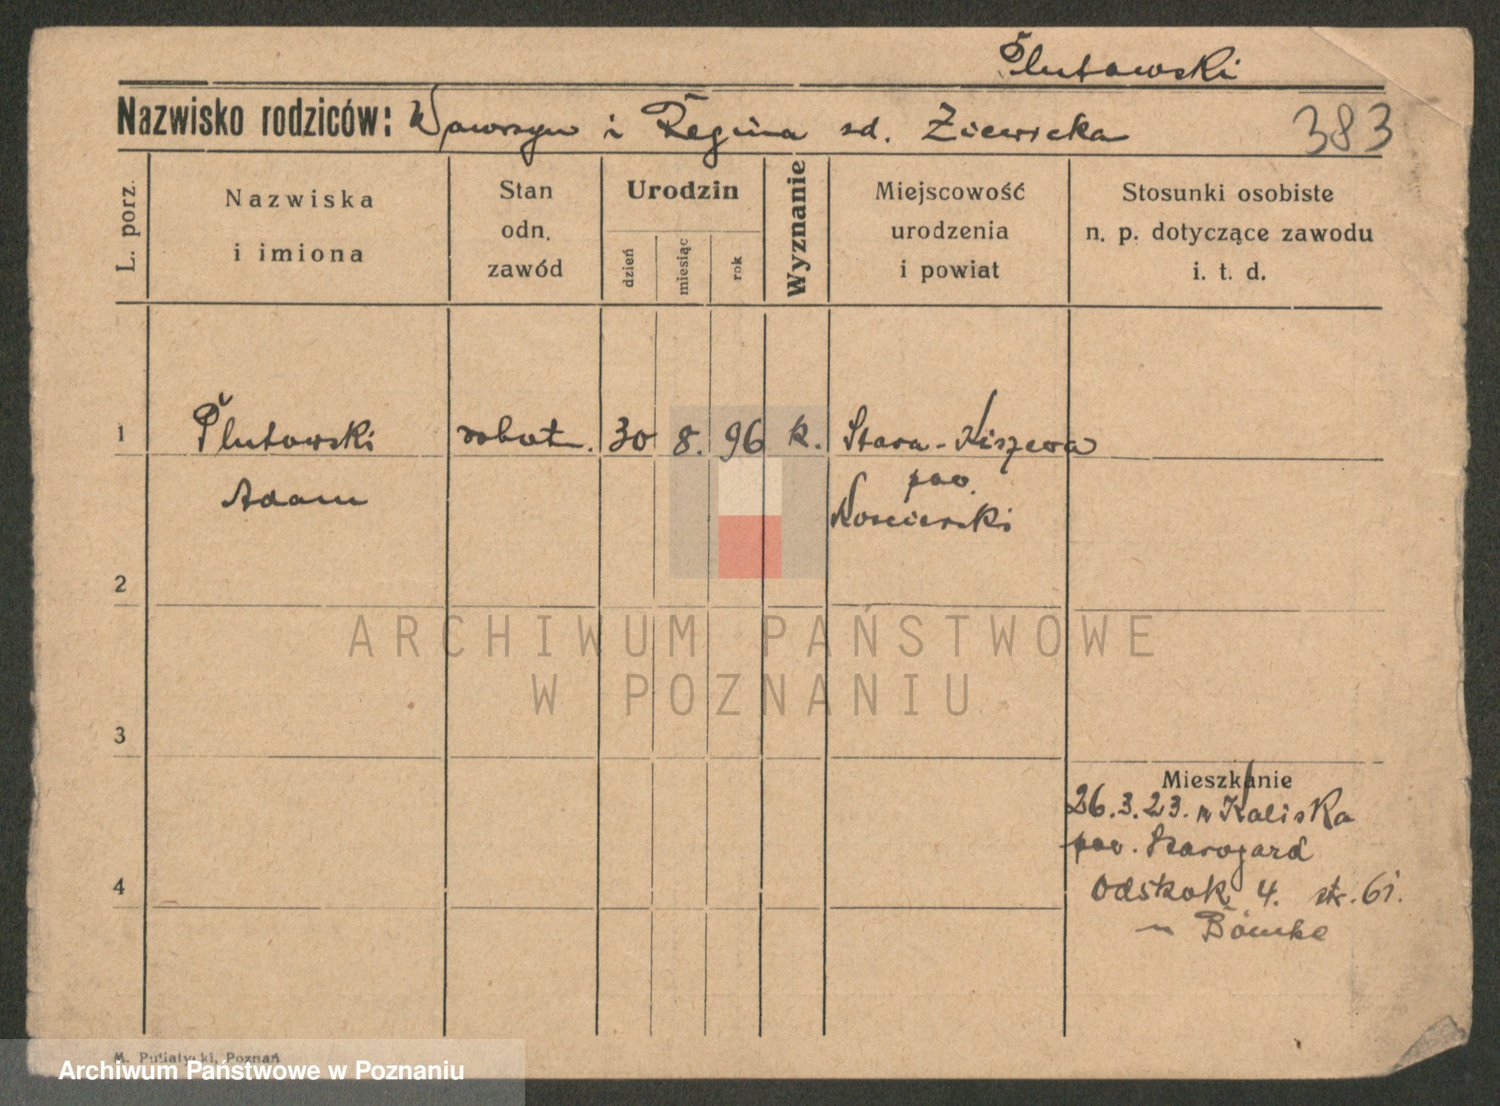 Plutowski
Nazwisko rodziców: Wawrzyn i Regina zd. Ziewicka
383
L. porz.
Nazwiska
i imiona
Stan
odn.
zawód
Urodzin
dzień
miesiąc
rok
Wyznanie
Miejscowość
urodzenia
i powiat
Stosunki osobiste
n. p. dotyczące zawodu
i. t. d.
1
Plutowski
Adam
robot.
30
8.
96
k.
Stara-Kiszewa
pow.
Koscierski
2
3
4
ARCHIWUM PAŃSTWOWE
W POZNANIU
Mieszkanie
26.3.23. Kaliska
pow. Starogard
Odskok 4. str. 61.
Bömke
M. Putiatycki, Poznań
Archiwum Państwowe w Poznaniu